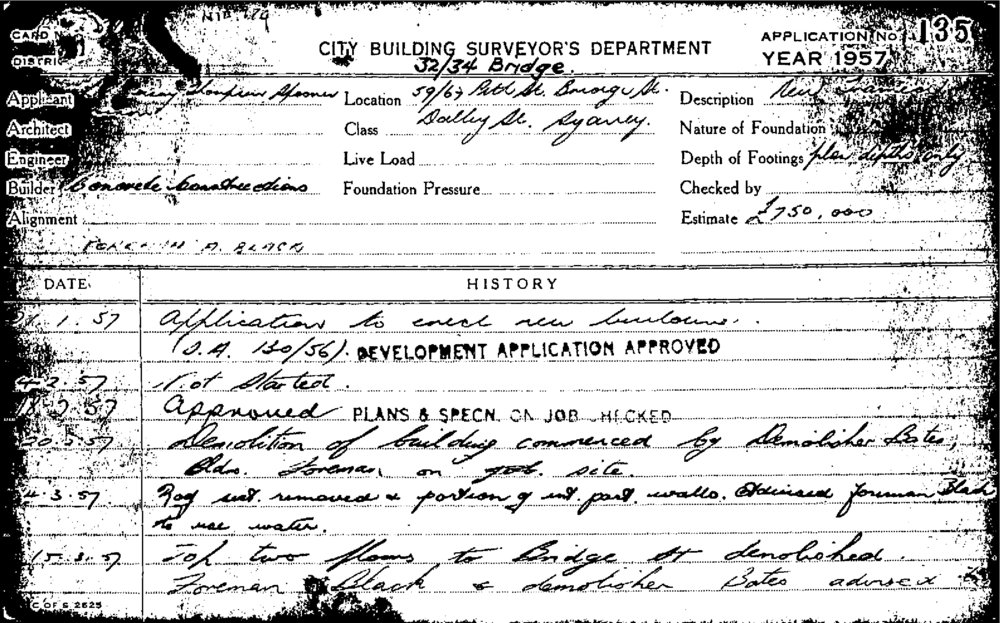 CARD No 1
APPLICATION No 135
DISTRICT
CITY BUILDING SURVEYOR'S DEPARTMENT
YEAR 1957
32/34 Bridge.
Applicant
Location 59/63 Pitt St. George St.
Description New
Architect
Class Dalley St. Sydney.
Nature of Foundation
Engineer
Live Load
Depth of Footings plan depths only
Builder Concrete Constructions
Foundation Pressure
Checked by
Alignment
Estimate £750,000
A. BLACK
DATE
HISTORY
21.1.57 Application to erect new building.
(D.A. 130/56). DEVELOPMENT APPLICATION APPROVED
4-2.57 Not Started.
Approved PLANS & SPECN. ON JOB CHECKED
Demolition of building commenced by Demolisher Bates,
Bldr. Foreman, on job site.
4.3.57 Roof removed & portion of int. part. walls. Advised foreman Black
to use water.
15.3.57 Top two floors to Bridge St demolished.
Foreman Black & demolisher Bates advised
C OF S 2625